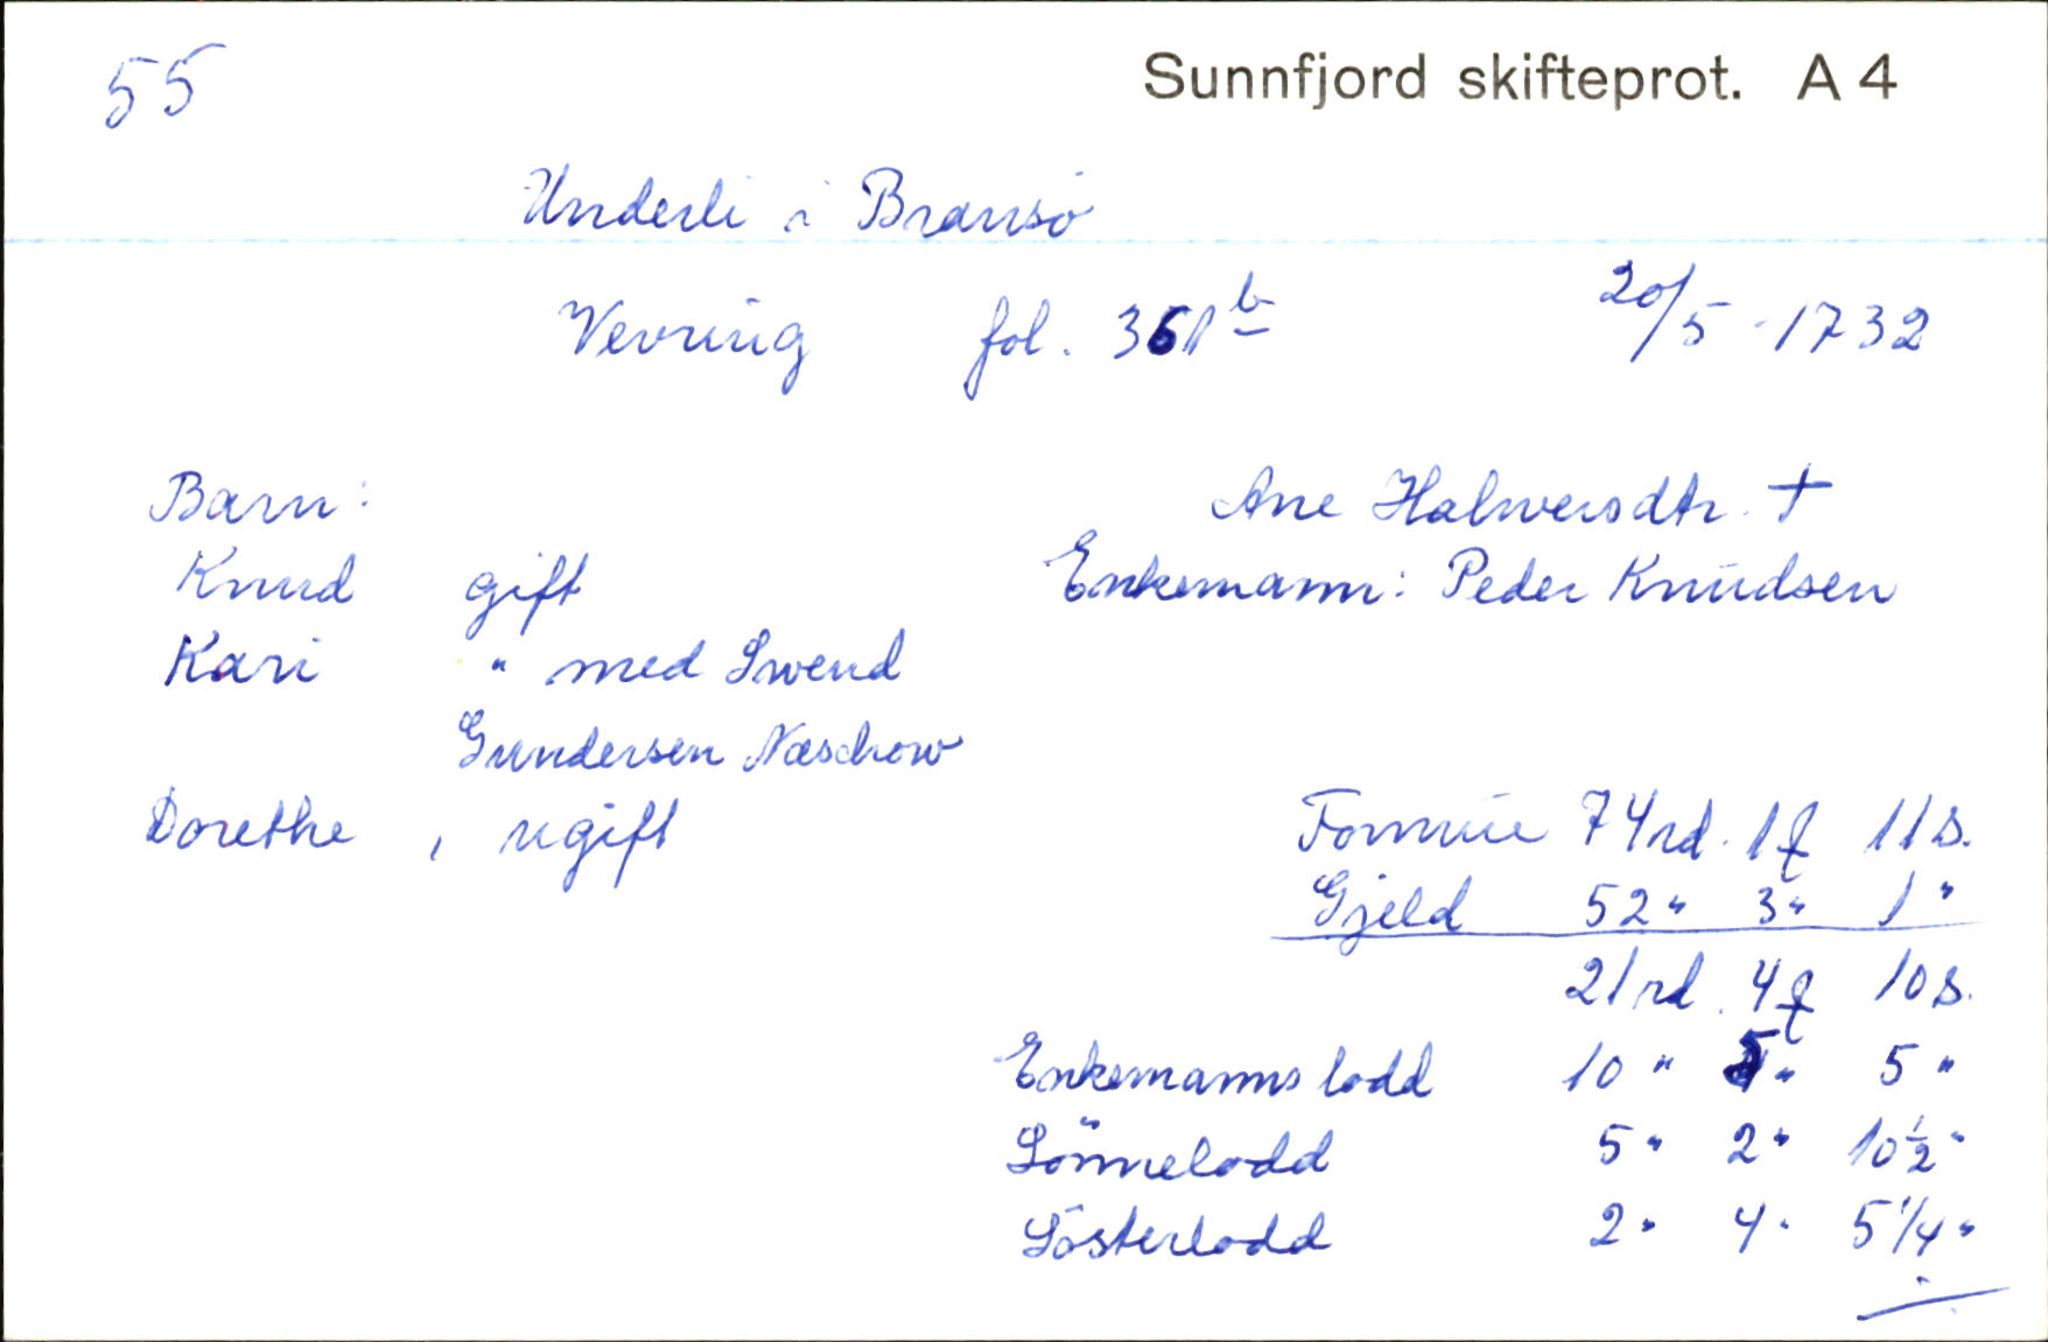 55
Sunnfjord skifteprot. A 4
Underli i Bransø
Vevring fol. 361b 20/5-1732
Barn: Ane Halwersdtr. †
Knud gift Enkemann: Peder Knudsen
Kari " med Swend
Gundersen Næschow
Dorethe, ugift
Formue 74 rd. 1 ƒ 11 s.
Gjeld 52 " 3 " 1 "
21 rd. 4 ƒ 10 s.
Enkemanns lodd 10 " 5 " 5 "
Sønnelodd 5 " 2 " 10 ½ "
Søsterlodd 2 " 4 " 5 1/4 "